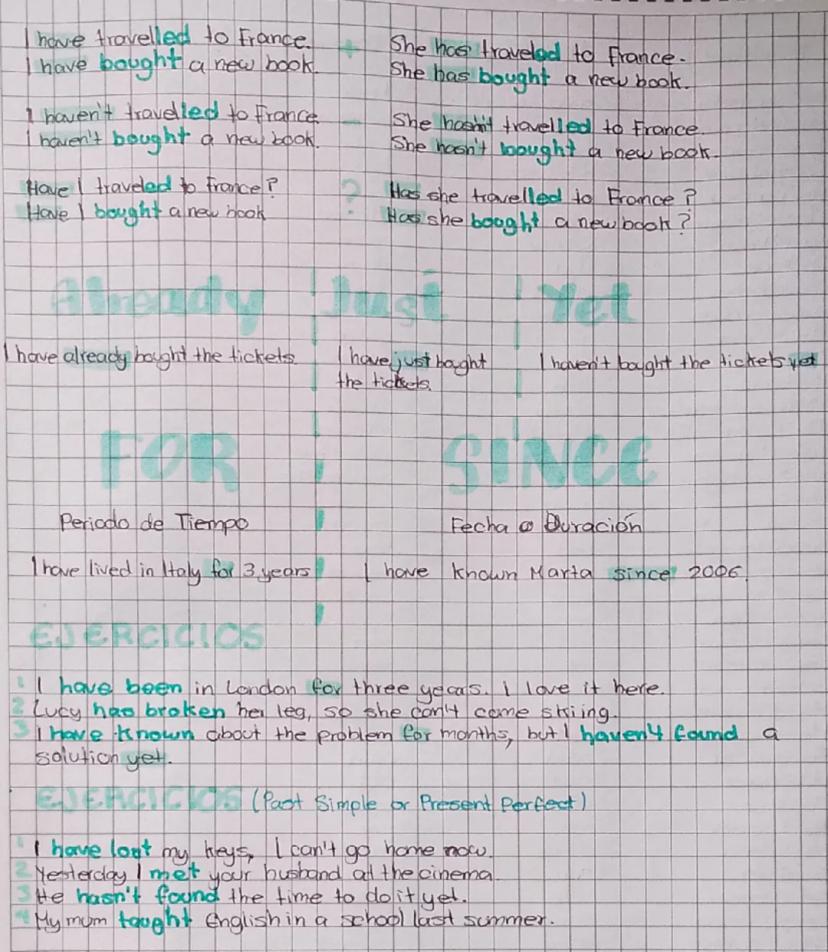 I have travelled to France. + She has traveled to France.
I have bought a new book. She has bought a new book.
I haven't travelled to France - She hashn't travelled to France.
I haven't bought a new book. She hasn't bought a new book.
Have I traveled to France? ? Has she travelled to France?
Have I bought a new book Has she booght a new book?
Already Just Yet
I have already bought the tickets. I have just bought I haven't bought the tickets yet
the tickets.
FOR SINCE
Periodo de Tiempo Fecha o Duración
I have lived in Italy for 3 years I have known Marta since 2006.
EJERCICIOS
1 I have been in London for three years. I love it here.
2 Lucy has broken her leg, so she can't come skiing.
3 I have known about the problem for months, but I haven't found a
solution yet.
EJERCICIOS (Past Simple or Present Perfect)
1 I have lost my keys, I can't go home now.
2 Yesterday I met your husband at the cinema.
3 He hasn't found the time to do it yet.
4 My mum taught English in a school last summer.